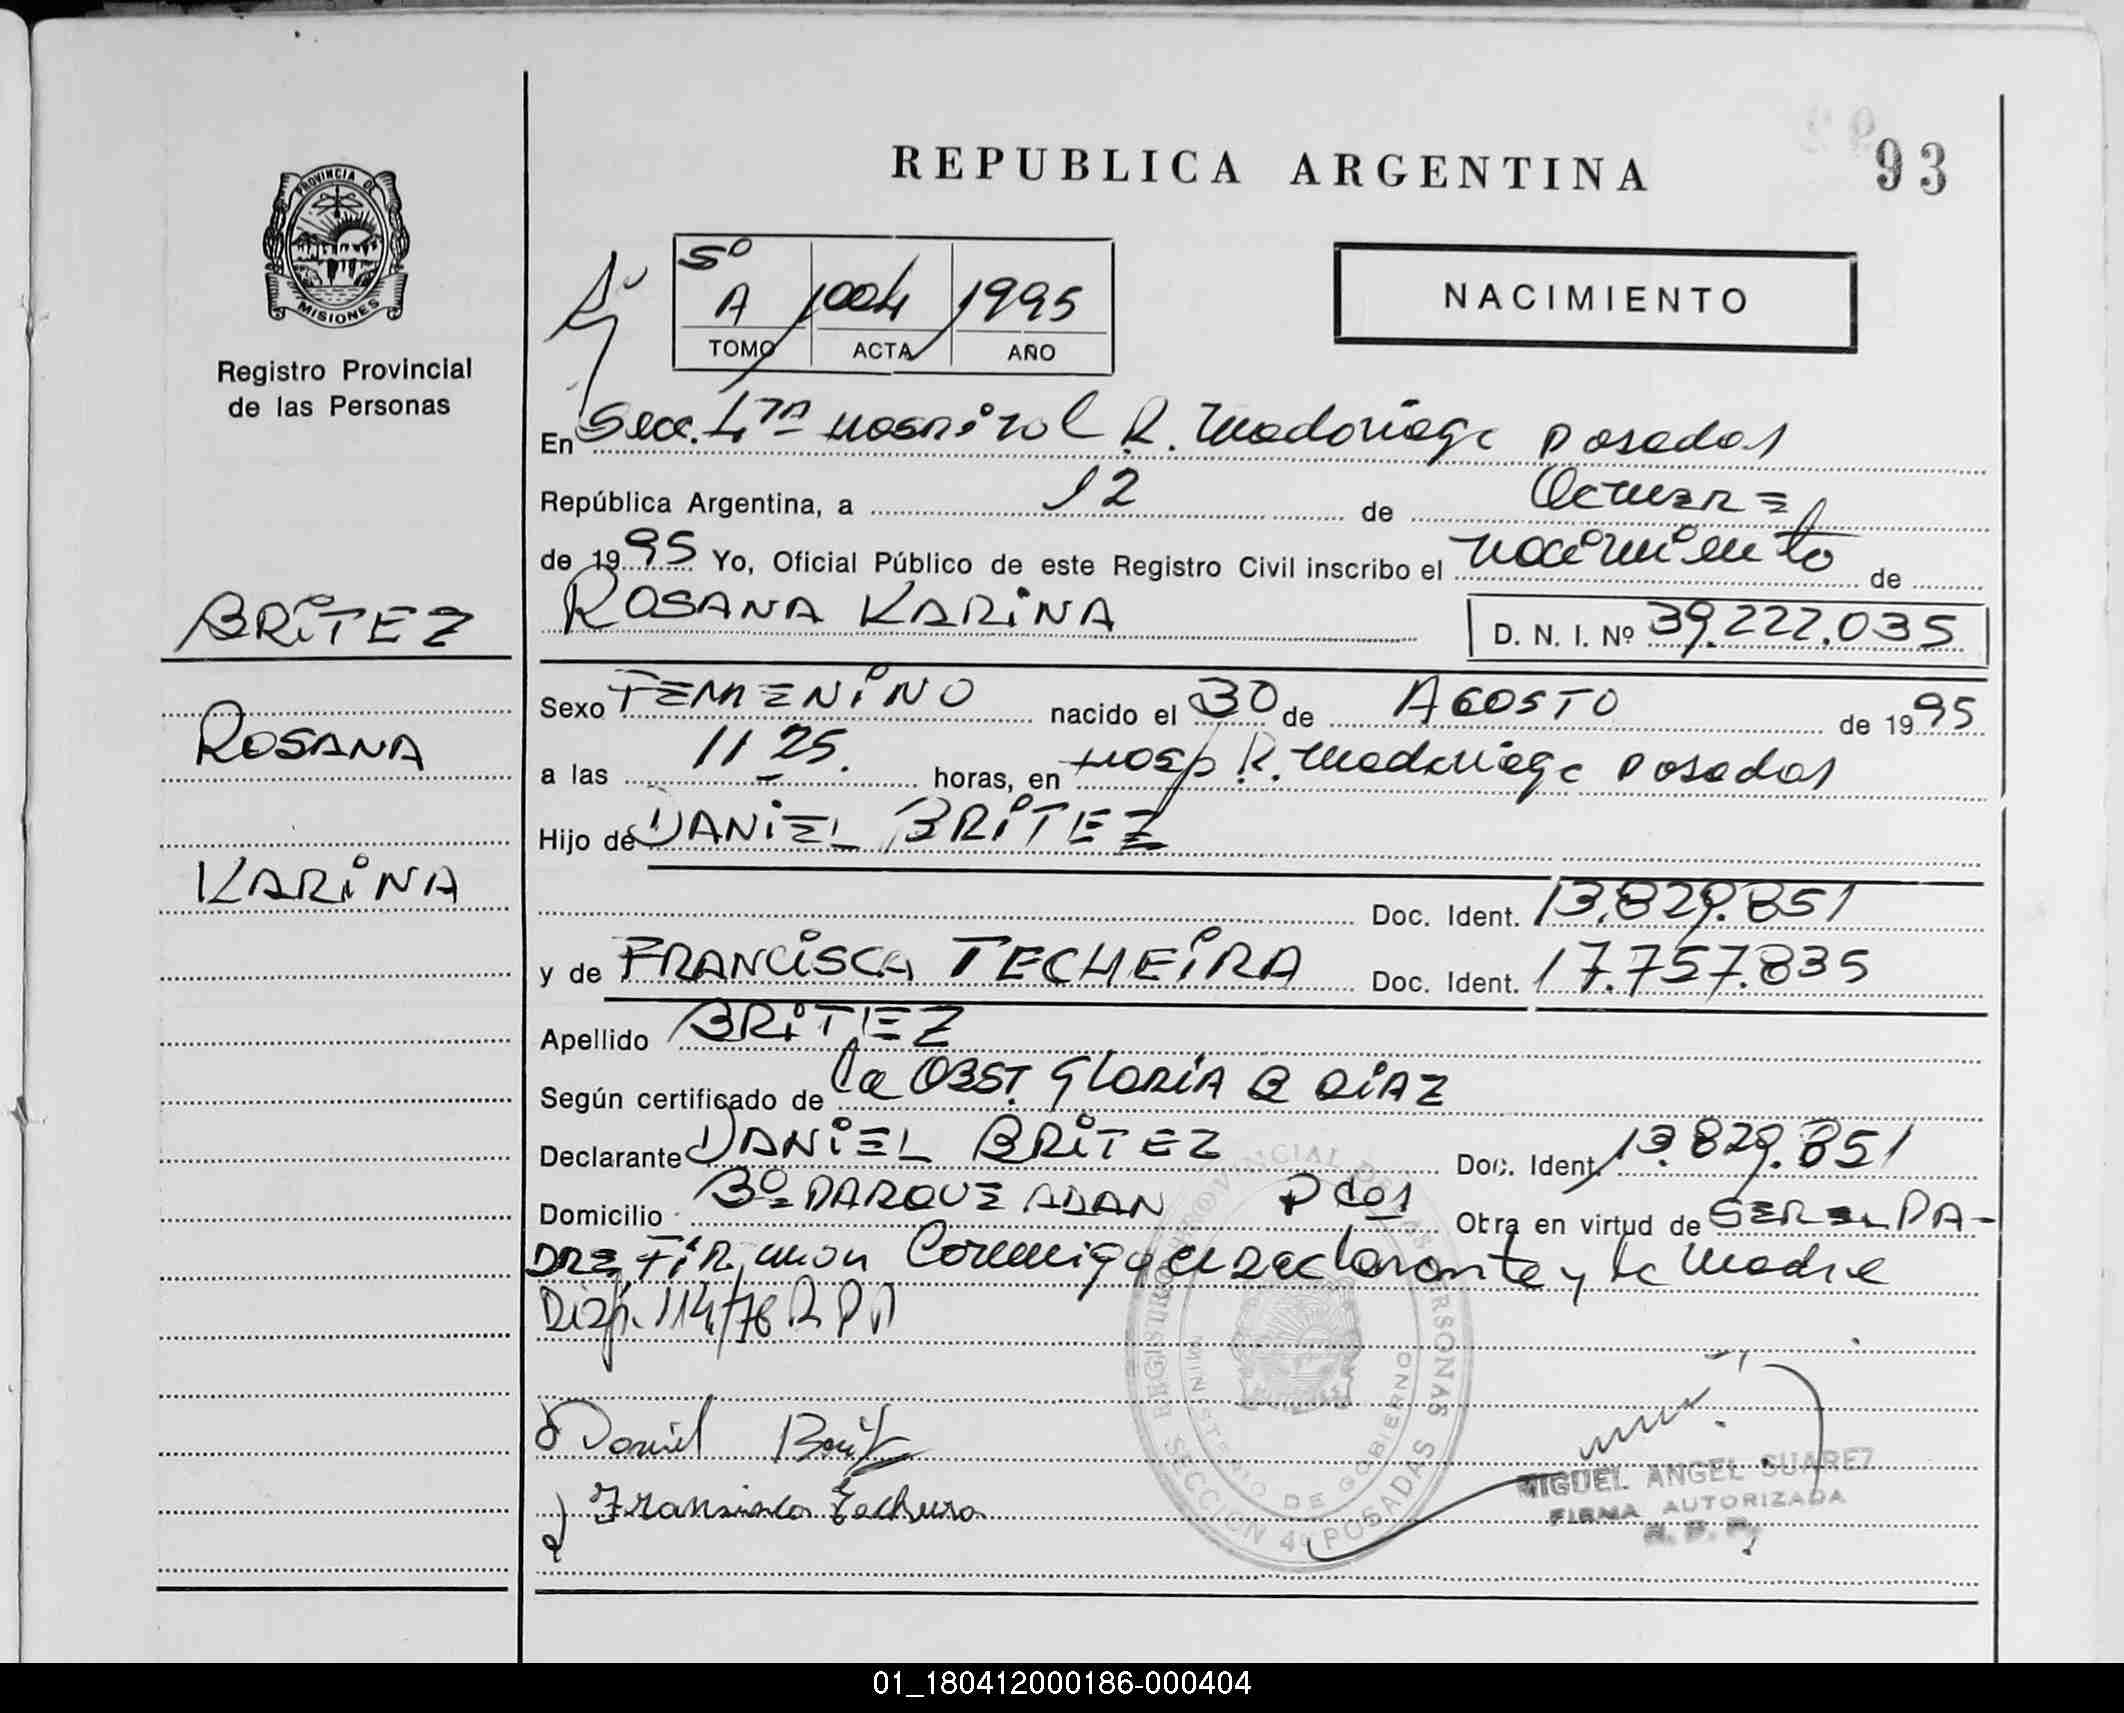 REPUBLICA ARGENTINA
93
PROVINCIA DE
MISIONES
Registro Provincial
de las Personas
5º
A 1004 1995
TOMO ACTA AÑO
NACIMIENTO
En Secc. 4ta Hospital R. Madariaga Posadas
República Argentina, a 12 de Octubre
de 1995 Yo, Oficial Público de este Registro Civil inscribo el nacimiento de
ROSANA KARINA D. N. I. Nº 39.222.035
BRITEZ
ROSANA
KARINA
Sexo FEMENINO nacido el 30 de AGOSTO de 1995
a las 11 25. horas, en Hosp R. Madariaga Posadas
Hijo de DANIEL BRITEZ
Doc. Ident. 13.829.851
y de FRANCISCA TECHEIRA Doc. Ident. 17.757.835
Apellido BRITEZ
Según certificado de la OBST. GLORIA B DIAZ
Declarante DANIEL BRITEZ Doc. Ident. 13.829.851
Domicilio Bº PARQUE ADAN Pdas Obra en virtud de SER EL PA-
DRE, FIRman Conmigo el declarante y la Madre
Disp. 114/76 R P P
Daniel Britez
Fransisca Techeira
REGISTRO PROVINCIAL DE LAS PERSONAS
MINISTERIO DE GOBIERNO
SECCION 4ª POSADAS
MIGUEL ANGEL SUAREZ
FIRMA AUTORIZADA
R. P. P.
01_180412000186-000404